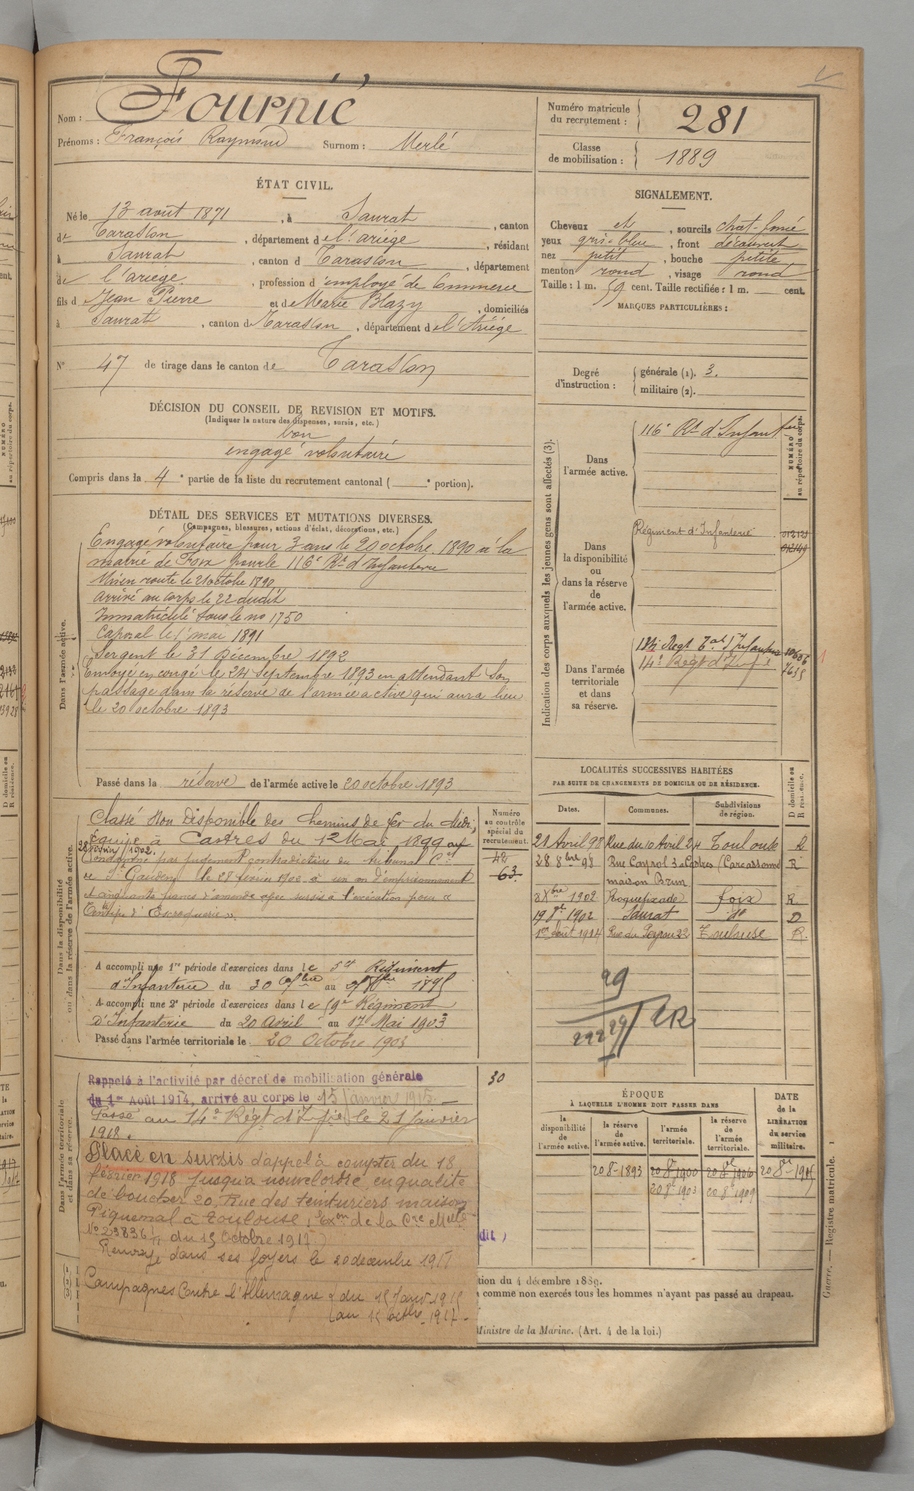 Nom : Fournié
Prénoms : François Raymond Surnom : Merlé
Numéro matricule du recrutement : 281
Classe de mobilisation : 1889
ÉTAT CIVIL.
Né le 13 août 1871, à Saurat, canton
de Tarascon, département de l'ariège, résidant
à Saurat, canton d Tarascon, département
de l'ariège, profession d'employé de Commerce
fils d Jean Pierre et de Marie Blazy, domiciliés
à Saurat, canton de Tarascon, département de l'Ariège
N° 47 de tirage dans le canton de Tarascon
SIGNALEMENT.
Cheveux et, sourcils chat-foncé
yeux gris-bleu, front découvert
nez petit, bouche petite
menton rond, visage rond
Taille : 1 m. 59 cent. Taille rectifiée : 1 m. cent.
MARQUES PARTICULIÈRES :
Degré d'instruction : générale (1). 3.
militaire (2).
DÉCISION DU CONSEIL DE REVISION ET MOTIFS.
(Indiquer la nature des dispenses, sursis, etc.)
bon
engagé volontaire
Compris dans la 4e partie de la liste du recrutement cantonal ( e portion).
DÉTAIL DES SERVICES ET MUTATIONS DIVERSES.
(Campagnes, blessures, actions d'éclat, décorations, etc.)
Dans l'armée active.
Engagé volontaire pour 3 ans le 20 octobre 1890 à la
mairie de Foix pour le 116e Rt d'Infanterie
Mis en route le 21 octobre 1890
arrivé au corps le 22 dudit
Immatriculé sous le no 1750
Caporal le 1er mai 1891
Sergent le 31 Décembre 1892
Envoyé en congé le 24 septembre 1893 en attendant son
passage dans la réserve de l'armée active qui aura lieu
le 20 octobre 1893
Passé dans la réserve de l'armée active le 20 octobre 1893
Indication des corps auxquels les jeunes gens sont affectés (3).
NUMÉRO au répertoire du corps.
Dans l'armée active.
116e Rt d'Infanterie
Dans la disponibilité ou dans la réserve de l'armée active.
Régiment d'Infanterie
Dans l'armée territoriale et dans sa réserve.
134 Regt Tal d'Infanterie
14e Regt d'Infie 7655
Dans la disponibilité ou dans la réserve de l'armée active.
Classé Non Disponible des Chemins de fer du Midi,
Equipe à Castres du 12 Mai 1899 au
28 février 1902.
Condamné par jugement contradictoire du tribunal Cel
de St Gaudens le 28 février 1902 à un an d'emprisonnement
et cinquante francs d'amende avec sursis à l'exécution pour «
d'Escroquerie »
Numéro au contrôle spécial du recrutement.
42
63
A accompli une 1re période d'exercices dans le Régiment
d'Infanterie du 30 au 1895
A accompli une 2e période d'exercices dans le Régiment
d'Infanterie du 20 Avril au 17 Mai 1903
Passé dans l'armée territoriale le 20 Octobre 1903
LOCALITÉS SUCCESSIVES HABITÉES
PAR SUITE DE CHANGEMENTS DE DOMICILE OU DE RÉSIDENCE.
Dates. Communes. Subdivisions de région. D domicile ou R résidence.
21 Avril 98 Rue du 10 Avril 24 Toulouse R
28 8bre 98 Rue Cayrol 3 à Castres (Carcassonne R
maison Brun
1902 Roquefixade foix R
1902 Saurat do D
1er août 1914 22 Toulouse R.
29
2229/2R
Dans l'armée territoriale et dans sa réserve.
Rappelé à l'activité par décret de mobilisation générale
du 1er Août 1914, arrivé au corps le 15 Janvier 1915
30
Passé au 14e Régt d'Infie le 21 Janvier
1918.
Placé en sursis d'appel à compter du 18
février 1918 jusqu'à nouvel ordre, en qualité
de boucher 20, rue des teinturiers maison
Piquemal à Toulouse,
du 15 Octobre 1917)
Renvoyé dans ses foyers le 20 decembre 191
Campagnes Contre l'Allemagne du 15 Janv. 1915
au 15 octbre 1917.
ÉPOQUE
À LAQUELLE L'HOMME DOIT PASSER DANS
la disponibilité de l'armée active. la réserve de l'armée active. l'armée territoriale. la réserve de l'armée territoriale. DATE de la LIBÉRATION du service militaire.
20 8-1893 20 8re 1900 20 8re 1906
20 8re 1903 20 8re 1909
tion du 4 décembre 1889.
à comme non exercés tous les hommes n'ayant pas passé au drapeau.
Ministre de la Marine. (Art. 4 de la loi.)
Guerre. — Registre matricule. 1